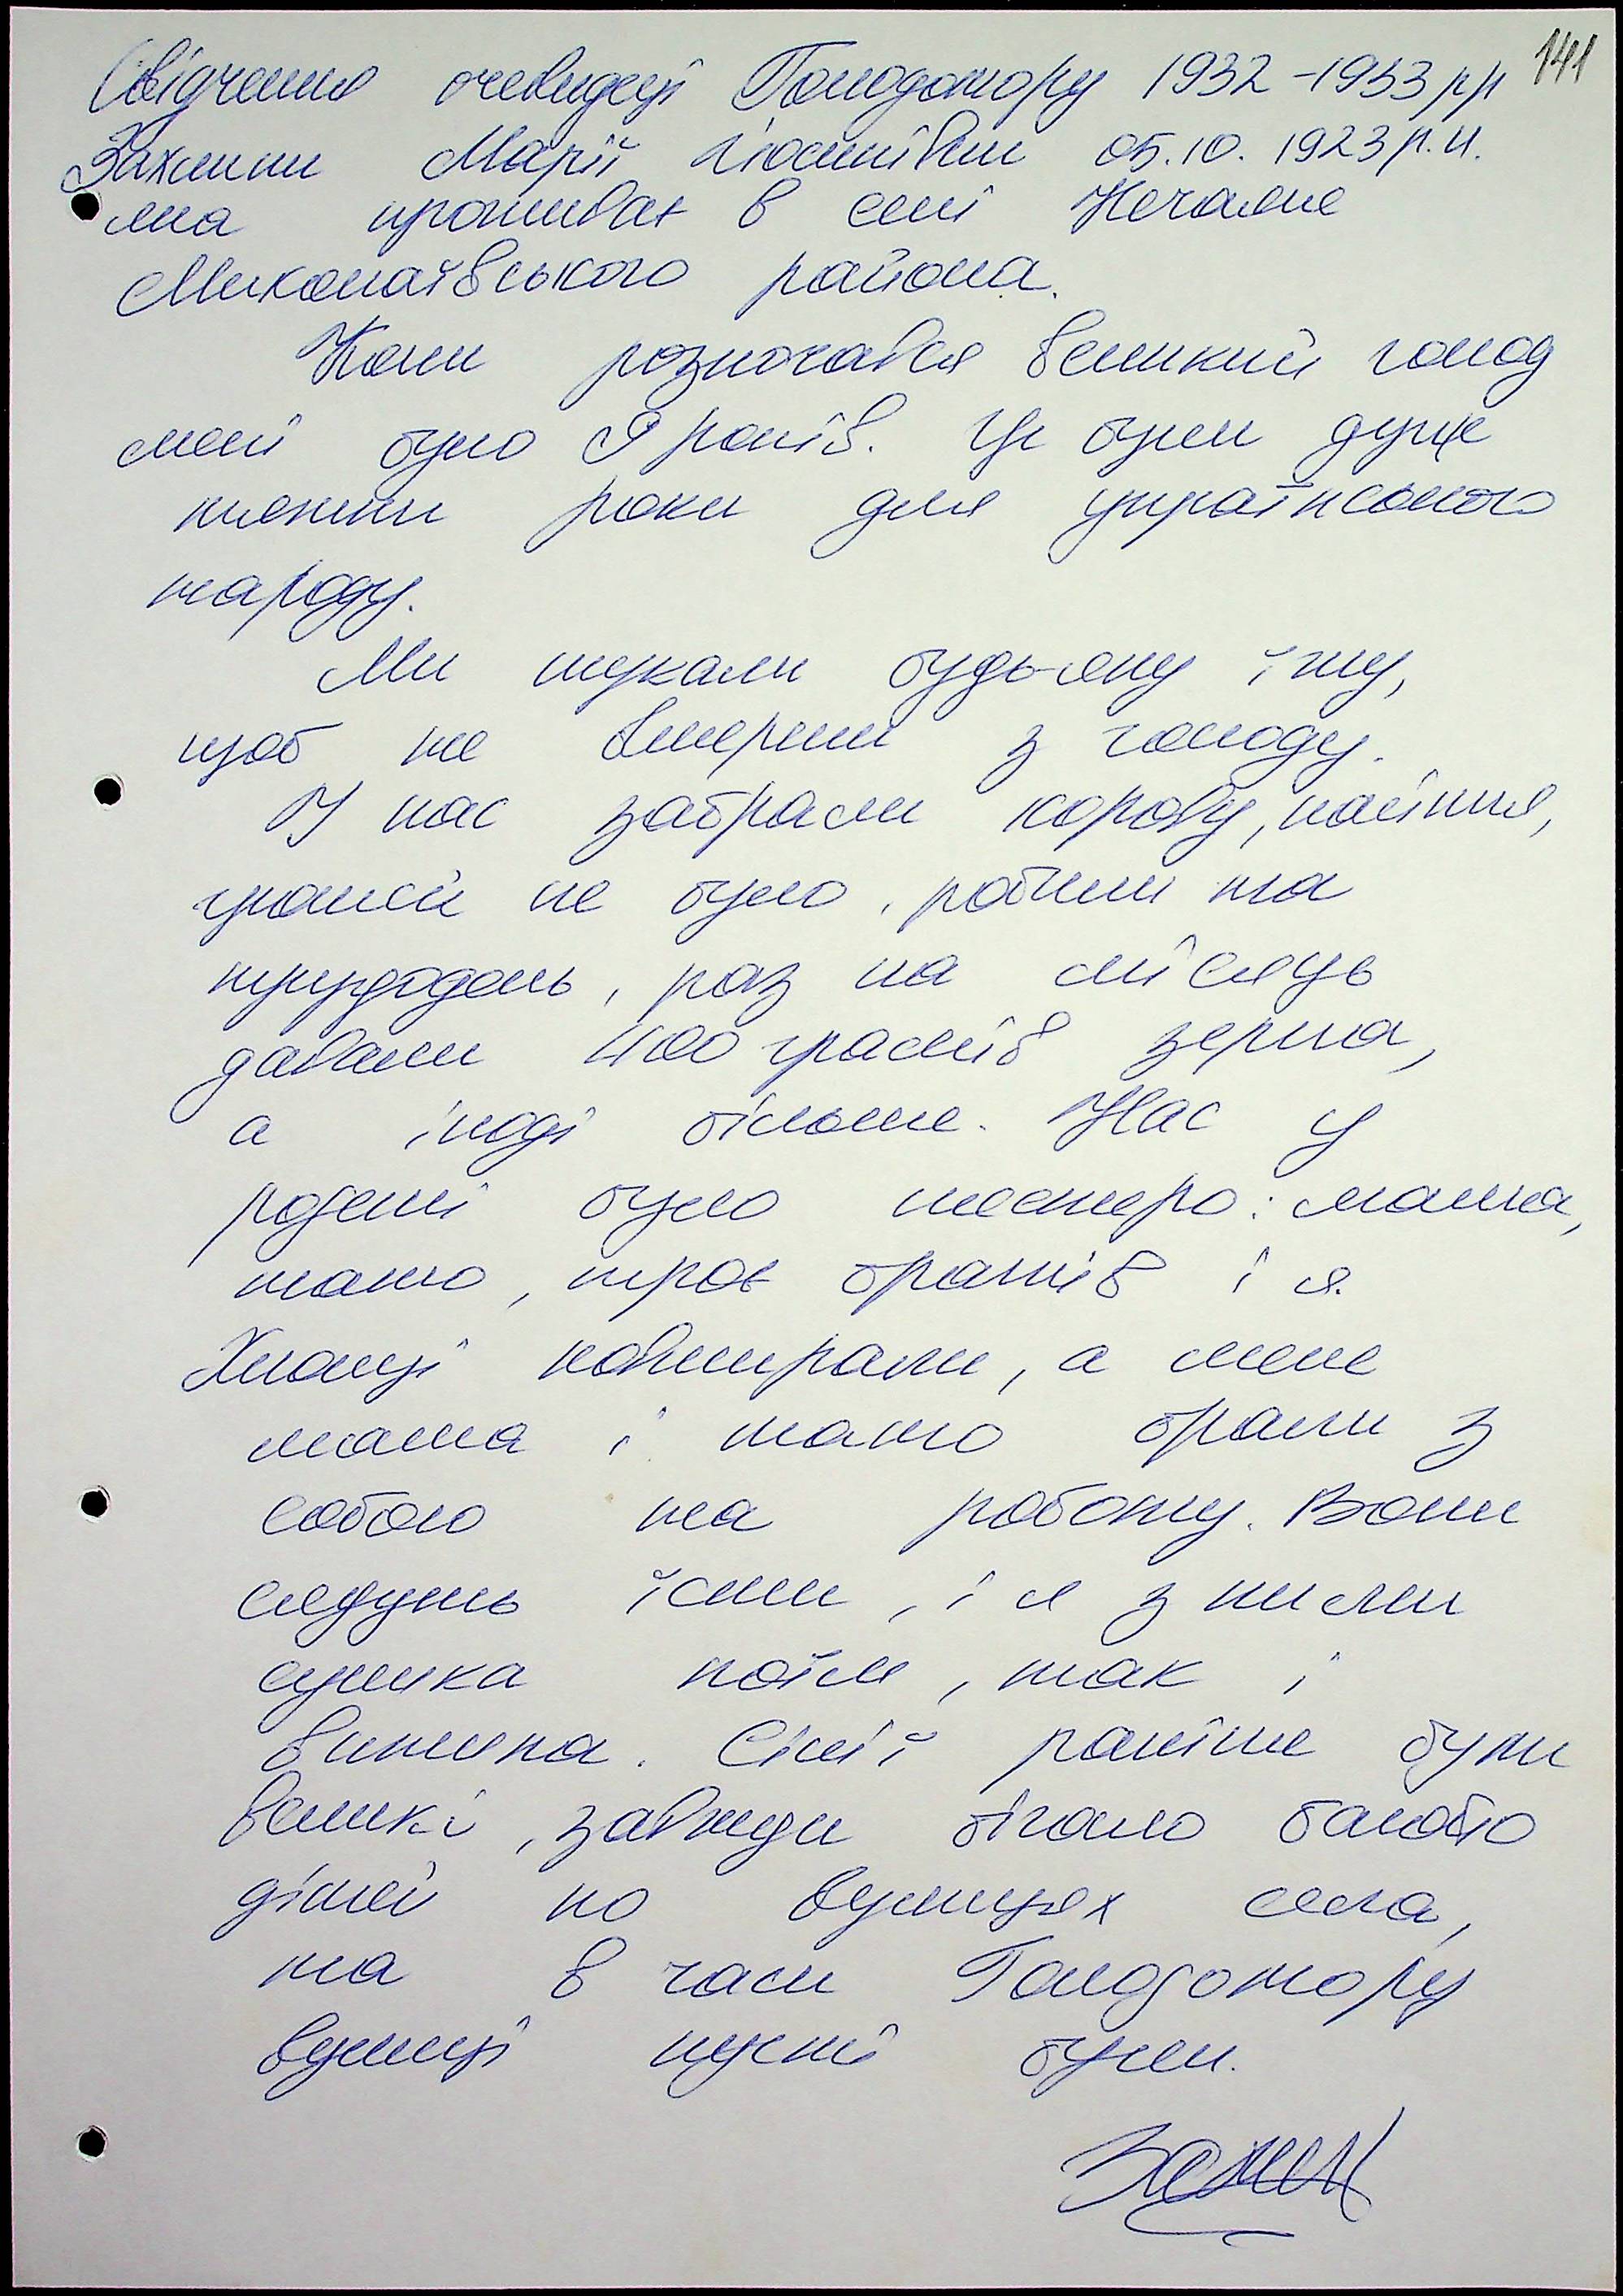 141
Свідчення очевидеці Голодомору 1932-1933 рр
Марії 05.10.1923 р.н.
яка проживає в селі Нечаяне
Миколаївського района.
Коли розпочався великий голод
мені було 9 років. Це були дуже
тяжкі роки для українського
народу.
Ми шукали будь-яку їжу,
щоб не вмерти з голоду.
У нас забрали корову,
грошей не було, робили на
трудодень, раз на місяць
давали 400 грамів зерна,
а іноді більше. Нас у
родині було шестеро: мама,
тато, троє братів і я.
Хлопці повмирали, а мене
мама і тато брали з
собою на роботу. Вони
сядуть їсти, і я з ними
супчика поїм, так і
вижила. Сім'ї раніше були
великі, завжди бігало багато
дітей по вулицях села,
та в часи Голодомору
вулиці пусті були.